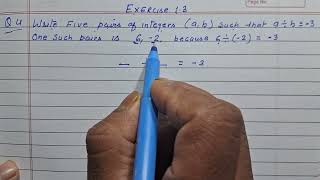 Page No.
Exercise 1.3
Q4 Write Five pairs of integers (a,b) Such that a÷b=-3
One Such pairs is 6, -2 because 6÷(-2) = -3
— — = -3